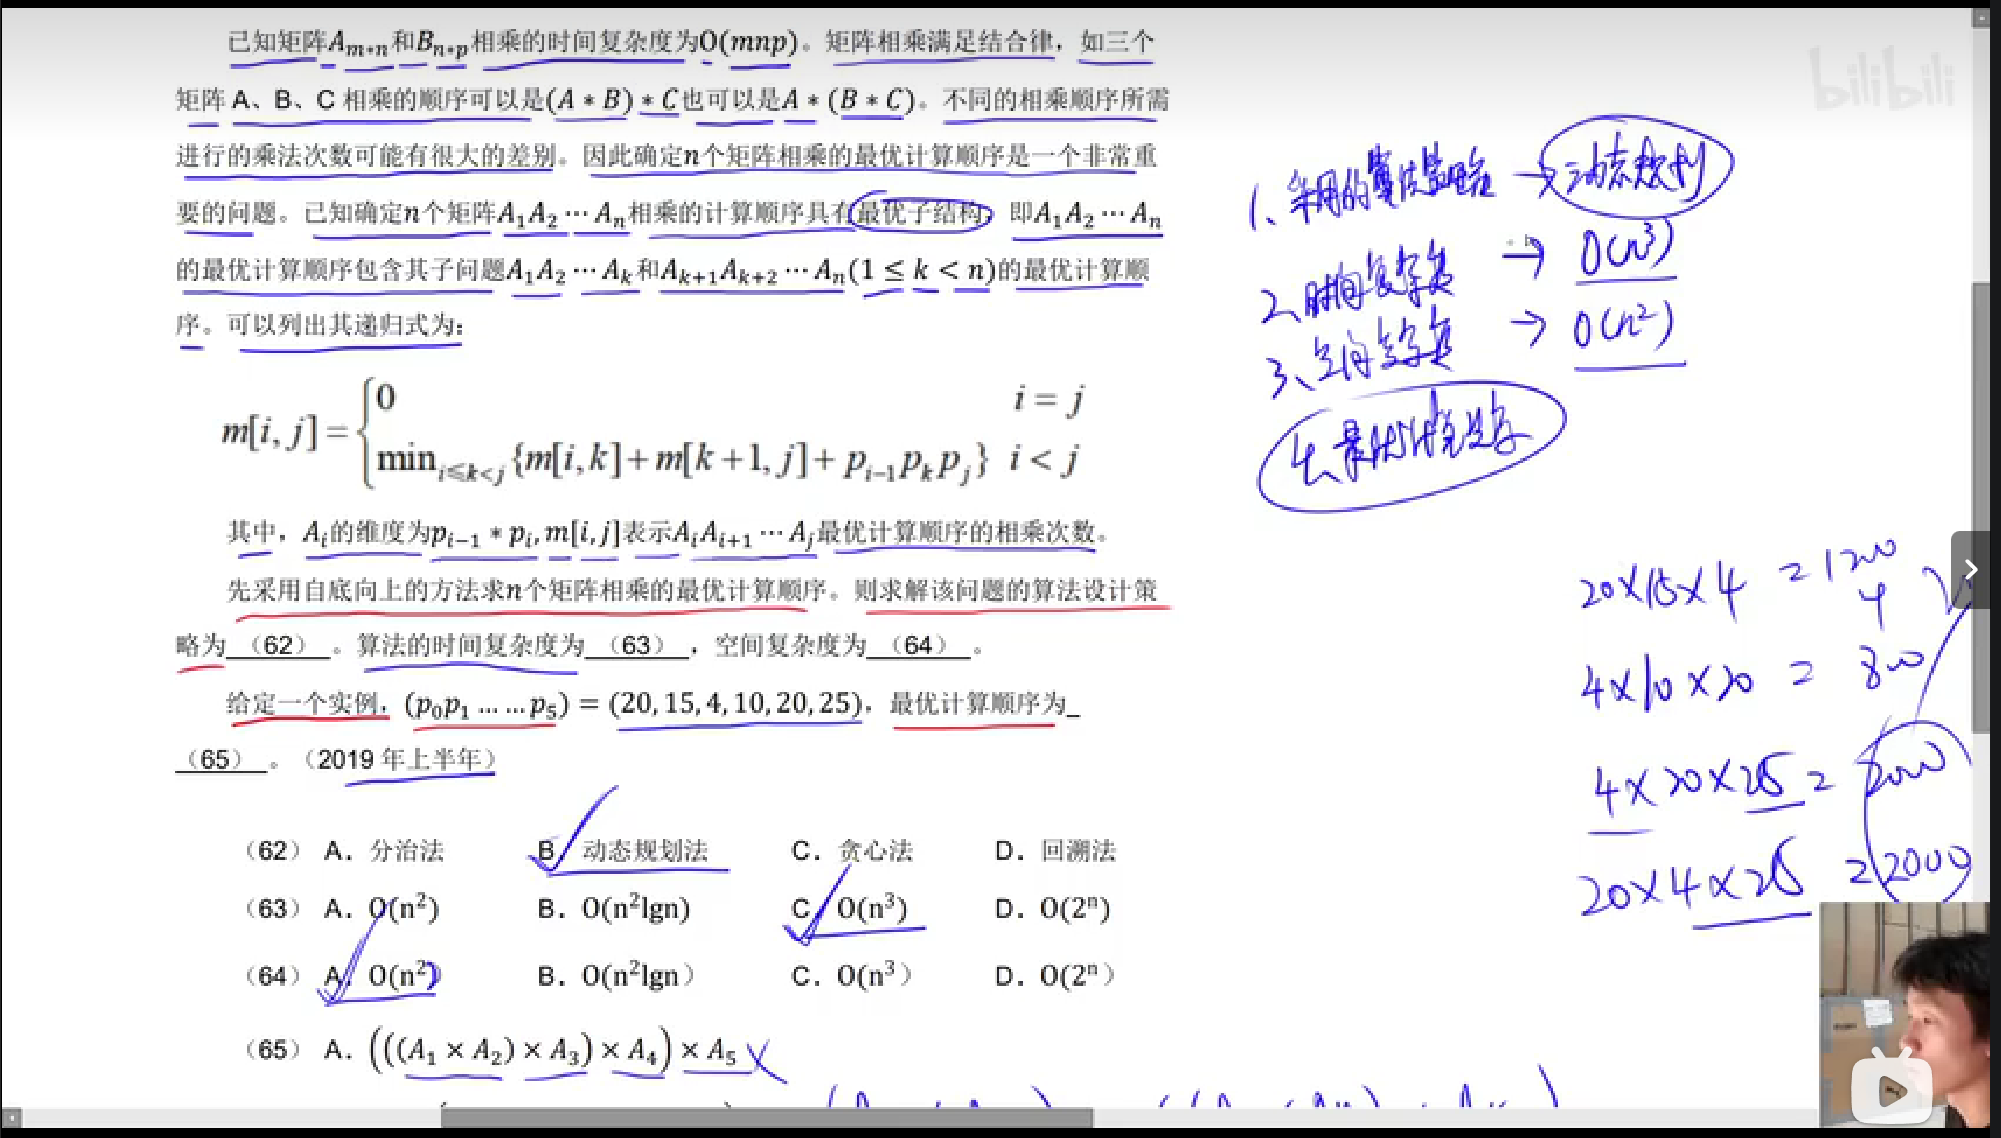 已知矩阵A_{m*n}和B_{n*p}相乘的时间复杂度为O(mnp)。矩阵相乘满足结合律，如三个
矩阵 A、B、C 相乘的顺序可以是(A * B) * C也可以是A * (B * C)。不同的相乘顺序所需
进行的乘法次数可能有很大的差别。因此确定n个矩阵相乘的最优计算顺序是一个非常重
要的问题。已知确定n个矩阵A₁A₂ ⋯ Aₙ相乘的计算顺序具有最优子结构，即A₁A₂ ⋯ Aₙ
的最优计算顺序包含其子问题A₁A₂ ⋯ Aₖ和Aₖ₊₁Aₖ₊₂ ⋯ Aₙ(1 ≤ k < n)的最优计算顺
序。可以列出其递归式为:
m[i, j] = { 0  i = j
min_{i≤k<j} {m[i,k] + m[k+1, j] + p_{i-1}p_k p_j}  i < j
其中，A_i的维度为p_{i-1} * p_i, m[i, j]表示A_iA_{i+1} ⋯ A_j最优计算顺序的相乘次数。
先采用自底向上的方法求n个矩阵相乘的最优计算顺序。则求解该问题的算法设计策
略为 （62） 。算法的时间复杂度为 （63） ，空间复杂度为 （64） 。
给定一个实例，(p₀p₁ … … p₅) = (20, 15, 4, 10, 20, 25)，最优计算顺序为_
（65） 。（2019 年上半年）
（62） A．分治法 B．动态规划法 C．贪心法 D．回溯法
（63） A．O(n²) B．O(n²lgn) C．O(n³) D．O(2ⁿ)
（64） A．O(n²) B．O(n²lgn） C．O(n³） D．O(2ⁿ）
（65） A．(((A₁ × A₂) × A₃) × A₄) × A₅
bilibili
1、采用的算法策略 → 动态规划
2、时间复杂度 → O(n³)
3、空间复杂度 → O(n²)
4、最优计算顺序
20×15×4 = 1200
4
4×10×20 = 800
4×20×25 = 2000
20×4×25 = 2000